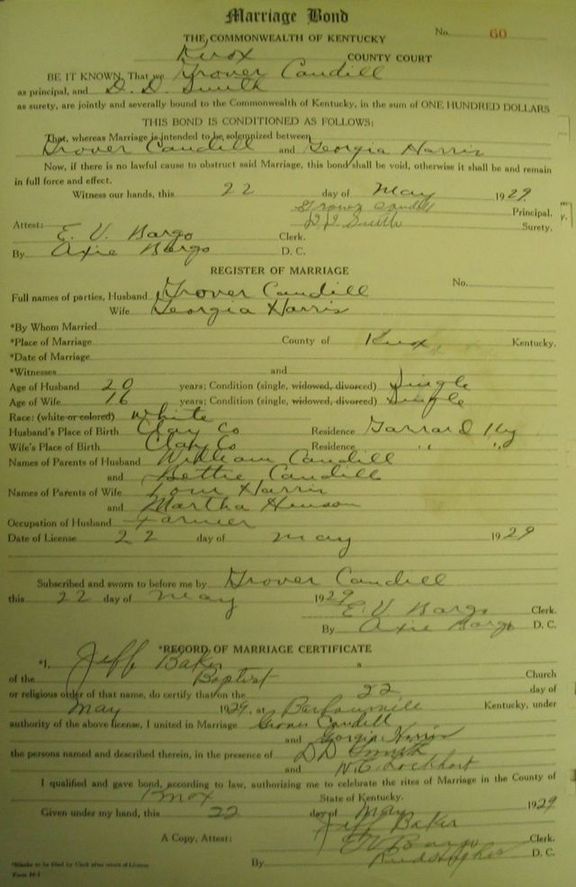 Marriage Bond
THE COMMONWEALTH OF KENTUCKY No. 60
Knox COUNTY COURT
BE IT KNOWN, That we Grover Caudill
as principal, and D. D. Smith
as surety, are jointly and severally bound to the Commonwealth of Kentucky, in the sum of ONE HUNDRED DOLLARS
THIS BOND IS CONDITIONED AS FOLLOWS:
That, whereas Marriage is intended to be solemnized between
Grover Caudill and Georgia Harris
Now, if there is no lawful cause to obstruct said Marriage, this bond shall be void, otherwise it shall be and remain
in full force and effect.
Witness our hands, this 22 day of May 1929
Grover Caudill Principal.
D D Smith Surety.
Attest:
E. V. Bargo Clerk.
By Axie Bargo D. C.
REGISTER OF MARRIAGE
No.
Full names of parties, Husband Grover Caudill
Wife Georgia Harris
*By Whom Married
*Place of Marriage County of Knox Kentucky.
*Date of Marriage
*Witnesses and
Age of Husband 20 years; Condition (single, widowed, divorced) Single
Age of Wife 16 years; Condition (single, widowed, divorced) Single
Race: (white or colored) White
Husband's Place of Birth Clay Co Residence Garrard Ky
Wife's Place of Birth Clay Co Residence " "
Names of Parents of Husband William Caudill
and Bettie Caudill
Names of Parents of Wife Tom Harris
and Martha Henson
Occupation of Husband Farmer
Date of License 22 day of May 1929
Subscribed and sworn to before me by Grover Caudill
this 22 day of May 1929
E. V. Bargo Clerk.
By Axie Bargo D. C.
*RECORD OF MARRIAGE CERTIFICATE
*I, Jeff Baker a
of the Baptist Church
or religious order of that name, do certify that on the 22 day of
May 1929, at Barbourville Kentucky, under
authority of the above license, I united in Marriage Caudill
and Gorgia Harris
the persons named and described therein, in the presence of D D Smith
and Lockhart
I qualified and gave bond, according to law, authorizing me to celebrate the rites of Marriage in the County of
Knox State of Kentucky.
Given under my hand, this 22 day of May 1929
Jeff Baker
A Copy, Attest: E V Bargo Clerk.
By D. C.
*Blanks to be filled by Clerk after return of License